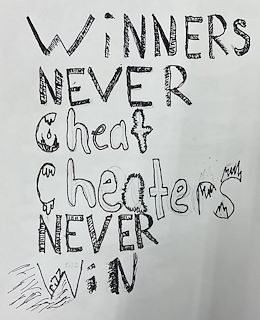 WiNNERS
NEVER
Cheat
Cheaters
NEVER
WiN